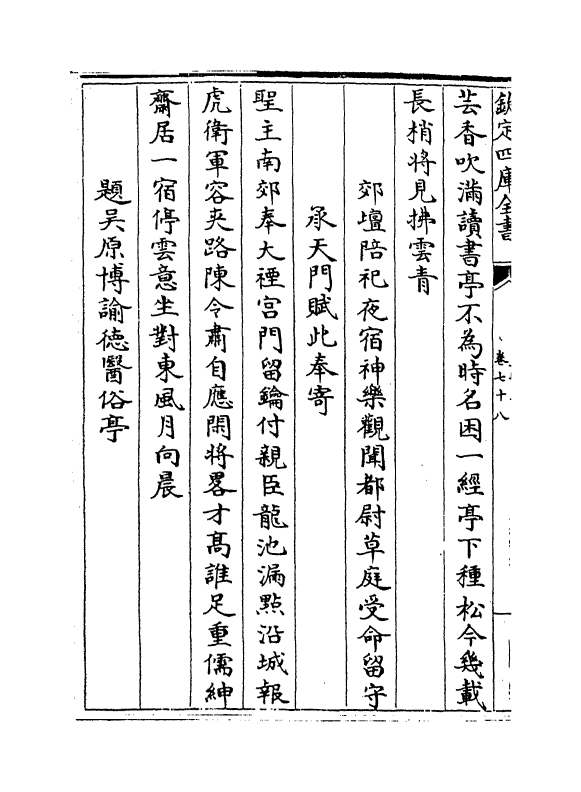 欽定四庫全書
卷七十八
芸香吹滿讀書亭不為時名困一經亭下種松今幾載
長梢將見拂雲青
郊壇陪祀夜宿神樂觀聞都尉草庭受命留守
承天門賦此奉寄
聖主南郊奉大禋宫門留鑰付親臣龍池漏點沿城報
虎衛軍容夾路陳令肅自應閑將畧才髙誰足重儒紳
齋居一宿停雲意坐對東風月向晨
題吴原博諭徳醫俗亭